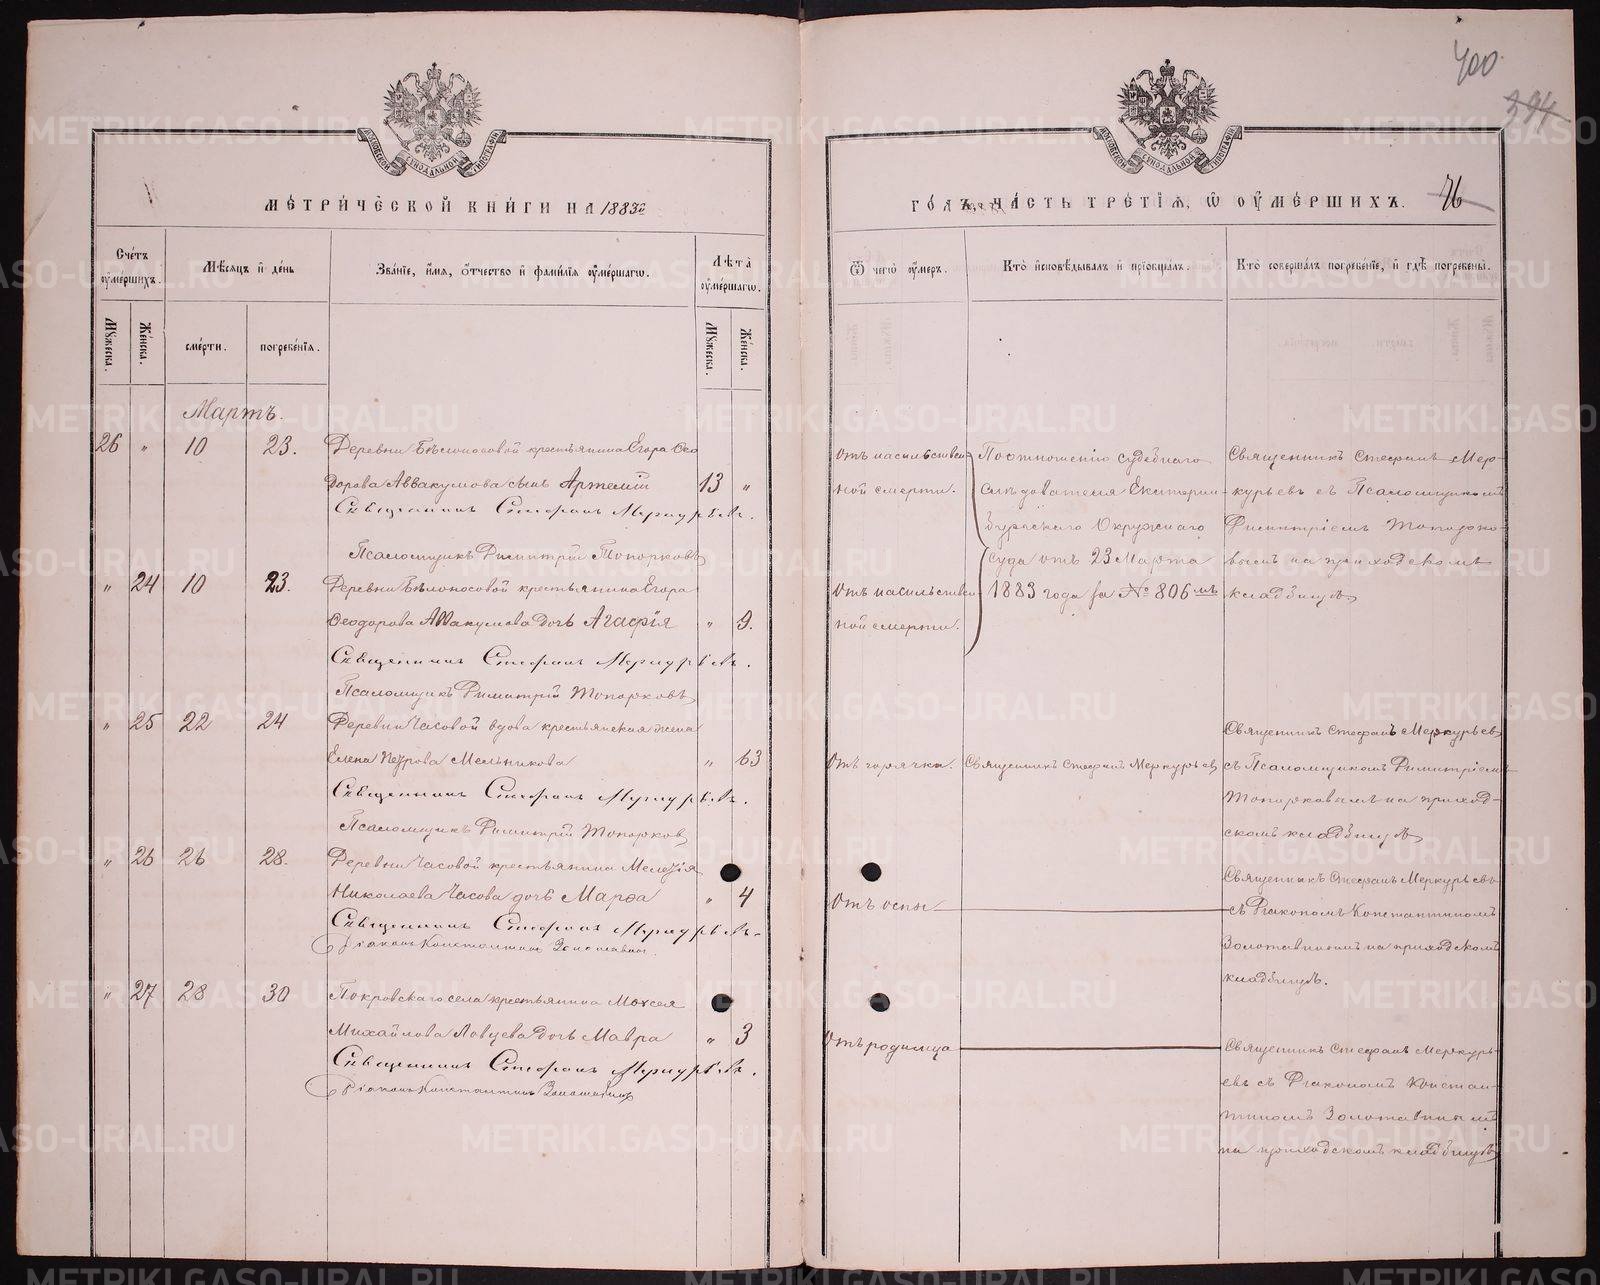 400
394
МОСКОВСКОЙ СѴНОДАЛЬНОЙ ТИПОГРАФІИ
МОСКОВСКОЙ СѴНОДАЛЬНОЙ ТИПОГРАФІИ
МЕТРИЧЕСКОЙ КНИГИ НА 1883й
ГОДЪ, ЧАСТЬ ТРЕТІЯ, Ѿ ОУМЕРШИХЪ.
76
Счетъ оумершихъ.
Мѣсяцъ и день
Званіе, имя, отчество и фамилія оумершагѡ.
Лѣта оумершагѡ.
Ѿ чегѡ оумеръ.
Кто исповѣдывалъ и пріобщалъ.
Кто совершалъ погребеніе, и гдѣ погребены.
Мужеска.
Женска.
смерти.
погребенія.
Мужеска.
Женска.
Мартъ.
26 " 10 23. Деревни Бѣлоносовой крестьянина Егора Ѳео
дорова Аввакумова сынъ Артемій 13 "
Священникъ Стефанъ Меркурьевъ.
Псаломщикъ Димитрій Топорковъ
" 24 10 23. Деревни Бѣлоносовой крестьянина Егора
Ѳеодорова Аввакумова дочь Агафія " 9.
Священникъ Стефанъ Меркурьевъ.
Псаломщикъ Димитрій Топорковъ
" 25 22 24 Деревни Часовой вдова крестьянская жена
Елена Петрова Мельникова " 63
Священникъ Стефанъ Меркурьевъ.
Псаломщикъ Димитрій Топорковъ
" 26 26 28. Деревни Часовой крестьянина Мелетія
Николаева Часова дочь Марѳа " 4
Священникъ Стефанъ Меркурьевъ.
Діаконъ Константинъ Золотавинъ.
" 27 28 30 Покровскаго села крестьянина Моѵсея
Михайлова Ловцева дочь Мавра " 3
Священникъ Стефанъ Меркурьевъ.
Діаконъ Константинъ Золотавинъ
Отъ насильствен
ной смерти.
Отъ насильствен
ной смерти.
Отъ горячки.
Отъ оспы
Отъ родимца
По отношенію судебнаго
слѣдователя Екатерин-
бургскаго Окружнаго
суда отъ 23 Марта
1883 года за № 806мъ
Священникъ Стефанъ Меркурьевъ
Священникъ Стефанъ Мер-
курьевъ съ Псаломщикомъ
Димитріемъ Топорко-
вымъ на приходскомъ
кладбищѣ
Священникъ Стефанъ Меркурьевъ
съ Псаломщикомъ Димитріемъ
Топорковымъ на приход-
скомъ кладбищѣ
Священникъ Стефанъ Меркурьевъ
съ Діакономъ Константиномъ
Золотавинымъ на приходскомъ
кладбищѣ.
Священникъ Стефанъ Меркурь-
евъ съ Діакономъ Констан-
тиномъ Золотавинымъ
на приходскомъ кладбищѣ
METRIKI.GASO-URAL.RU